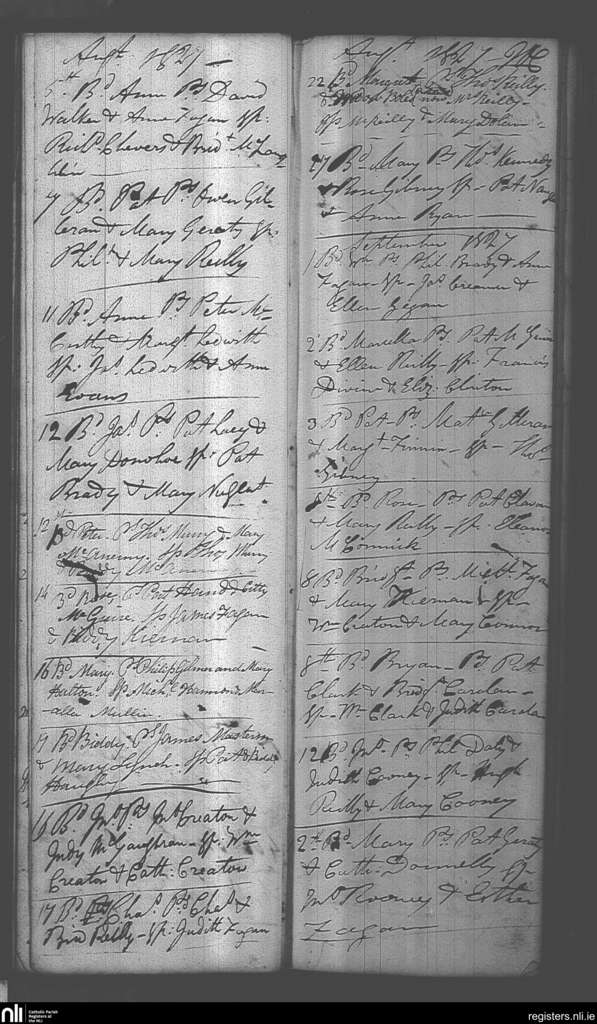 Augt. 1827
5th Bd. Ann Ps. David
Walker & Anne Fagan Sp:
Richd. Clevers & Bridt. McLaugh
lin
7 Bd. Pat Ps. Owen Gil-
leran & Mary Geraty Sp:
Phil. & Mary Reilly
11 Bd. Anne Ps. Peter Mc
& Margt Ledwith
Sp: Jas. Ledwith & Ann
Evans
12 Bd. Jas. Ps. Pat Lacy &
Mary Donohoe Sp: Pat
Brady & Mary Nugent
13 Bd. Peter Ps. Thos. Murry & Mary
McAnemy. Sp Thos. Murry
14 Bd. Rosey Ps. Pat & Kitty
McGuire. Sp James Fagan
& Kiernan
16 Bd. Mary Ps. Philip Gilmor and Mary
Hatton Sp Michl.
Mullin
19 Bd. Biddy Ps. James Masterson
& Mary Lynch. Sp Pat & Biddy
16 Bd. Jno. Ps. Jno. Creaton &
Judy McGaughran Sp: Wm
Creaton & Cath: Creaton
17 Bd. Chas. Ps. Chas. &
Brid Reilly - Sp: Judith Fagan
Augst. 1827
22 Bd. Margaret Ps. Thos. Reilly
Sp McReilly & Mary Dolan
27 Bd. Mary Ps. Thos. Kennedy
& Rose Gibney Sp - Pat
& Anne Ryan
September 1827
1 Bd. Wm Ps. Phil Brady & Ann
Fagan - Sp - Jas. Creamer &
Ellen Fegan
2d Bd. Marcella Ps. Pat
& Ellen Reilly - Sp. Francis
Divine & Eliz. Clinton
3 Bd. Pat Ps. Matw. Gilleran
& Margt. Finnin - Sp - Thos.
Gibney
Bd. Rose - Ps. Pat
& Mary Reilly - Sp. Eleanor
McCormick
8 Bd. Bridgt. Ps. Michl. Fagan
& Mary Kiernan Sp -
Wm Creaton & Mary Connor
8th Bd. Bryan - Ps. Pat
Clark & Bridgt. Carolan -
Sp - Wm Clark & Judith Carolan
12 Bd. Jno. Ps. Phil Daly &
Judith Cooney - Sp - Hugh
Reilly & Mary Cooney
Bd. Mary Ps. Pat Geraty
& Cath. Donnelly Sp
Jno. Rooney & Esther
Fagan
nli
Catholic Parish
Registers at
the NLI
registers.nli.ie